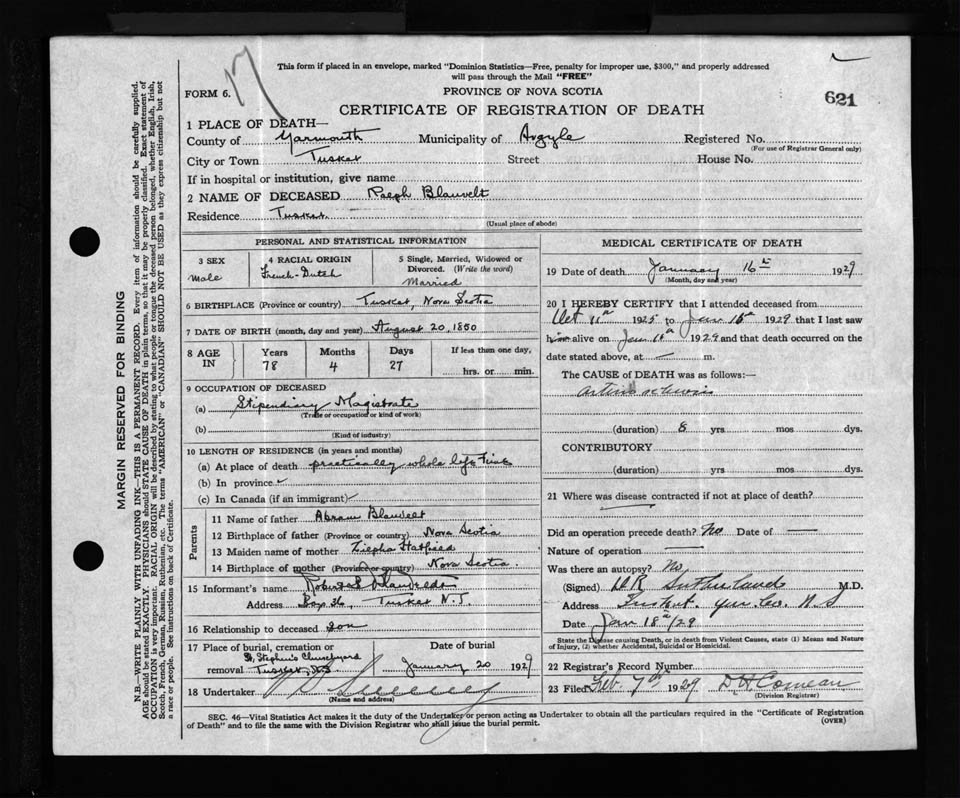 17
This form if placed in an envelope, marked "Dominion Statistics—Free, penalty for improper use, $300," and properly addressed
will pass through the Mail "FREE"
FORM 6.
PROVINCE OF NOVA SCOTIA
621
CERTIFICATE OF REGISTRATION OF DEATH
1 PLACE OF DEATH—
County of Yarmouth Municipality of Argyle Registered No.
(For use of Registrar General only)
City or Town Tusket Street House No.
If in hospital or institution, give name
2 NAME OF DECEASED Ralph Blauvelt
Residence Tusket
(Usual place of abode)
PERSONAL AND STATISTICAL INFORMATION
3 SEX 4 RACIAL ORIGIN 5 Single, Married, Widowed or
Divorced. (Write the word)
Male French-Dutch Married
6 BIRTHPLACE (Province or country) Tusket, Nova Scotia
7 DATE OF BIRTH (month, day and year) August 20, 1850
8 AGE IN Years Months Days If less than one day,
78 4 27 hrs. or min.
9 OCCUPATION OF DECEASED
(a) Stipendiary Magistrate
(Trade or occupation or kind of work)
(b)
(Kind of industry)
10 LENGTH OF RESIDENCE (in years and months)
(a) At place of death practically whole life
(b) In province
(c) In Canada (if an immigrant)
Parents
11 Name of father Abram Blauvelt
12 Birthplace of father (Province or country) Nova Scotia
13 Maiden name of mother Hatfield
14 Birthplace of mother (Province or country) Nova Scotia.
15 Informant's name Blauveldt
Address Box 36, Tusket N.S.
16 Relationship to deceased Son
17 Place of burial, cremation or Date of burial
St. Stephen's Churchyard
removal Tusket, N.S January 20 1929
18 Undertaker
(Name and address)
MEDICAL CERTIFICATE OF DEATH
19 Date of death January 16th 1929
(Month, day and year)
20 I HEREBY CERTIFY that I attended deceased from
Oct 11th 1925 to Jan 16th 1929 that I last saw
him alive on Jan 1929 and that death occurred on the
date stated above, at m.
The CAUSE of DEATH was as follows:—
(duration) 8 yrs mos dys.
CONTRIBUTORY
(duration) yrs. mos dys.
21 Where was disease contracted if not at place of death?
Did an operation precede death? No Date of
Nature of operation
Was there an autopsy? No
(Signed) Sutherland M.D.
Address Tusket. Yar. Co. N.S
Date Jan 18th/29
State the Disease causing Death, or in death from Violent Causes, state (1) Means and Nature
of Injury, (2) whether Accidental, Suicidal or Homicidal.
22 Registrar's Record Number
23 Filed Feb. 7th 1929 Comeau
(Division Registrar)
SEC. 46—Vital Statistics Act makes it the duty of the Undertaker or person acting as Undertaker to obtain all the particulars required in the "Certificate of Registration
of Death" and to file the same with the Division Registrar who shall issue the burial permit.
(OVER)
MARGIN RESERVED FOR BINDING
N.B.—WRITE PLAINLY WITH UNFADING INK—THIS IS A PERMANENT RECORD. Every item of information should be carefully supplied.
AGE should be stated EXACTLY. PHYSICIANS should STATE CAUSE OF DEATH in plain terms, so that it may be properly classified. Exact statement of
OCCUPATION is very important. RACIAL ORIGIN will be described by stating to what people or tongue the deceased person belonged, whether English, Irish,
Scotch, French, German, Russian, Ruthenian, etc. The terms "AMERICAN" or "CANADIAN" SHOULD NOT BE USED as they express citizenship but not
a race or people. See instructions on back of Certificate.